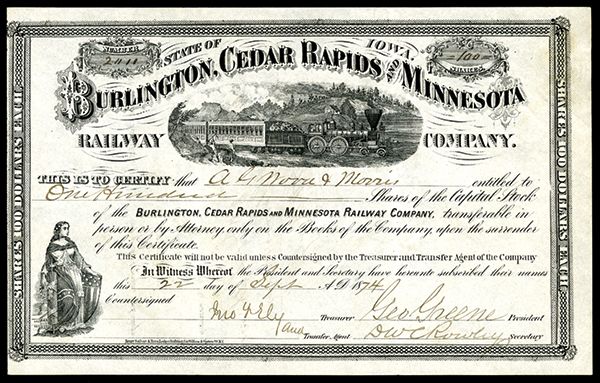 NUMBER
2011
STATE OF IOWA.
100
SHARES
BURLINGTON, CEDAR RAPIDS AND MINNESOTA
RAILWAY COMPANY.
THIS IS TO CERTIFY that A G Wood & Morris entitled to
One Hundred Shares of the Capital Stock
of the BURLINGTON, CEDAR RAPIDS AND MINNESOTA RAILWAY COMPANY, transferable in
person or by Attorney only on the Books of the Company, upon the surrender
of this Certificate.
This Certificate will not be valid unless Countersigned by the Treasurer and Transfer Agent of the Company
In Witness Whereof the President and Secretary have hereunto subscribed their names
this 22 day of Sept A.D. 1874
Countersigned
Jno F Ely Treasurer Geo Greene President
and Transfer Agent D W C Rowley Secretary
SHARES 100 DOLLARS EACH
SHARES 100 DOLLARS EACH